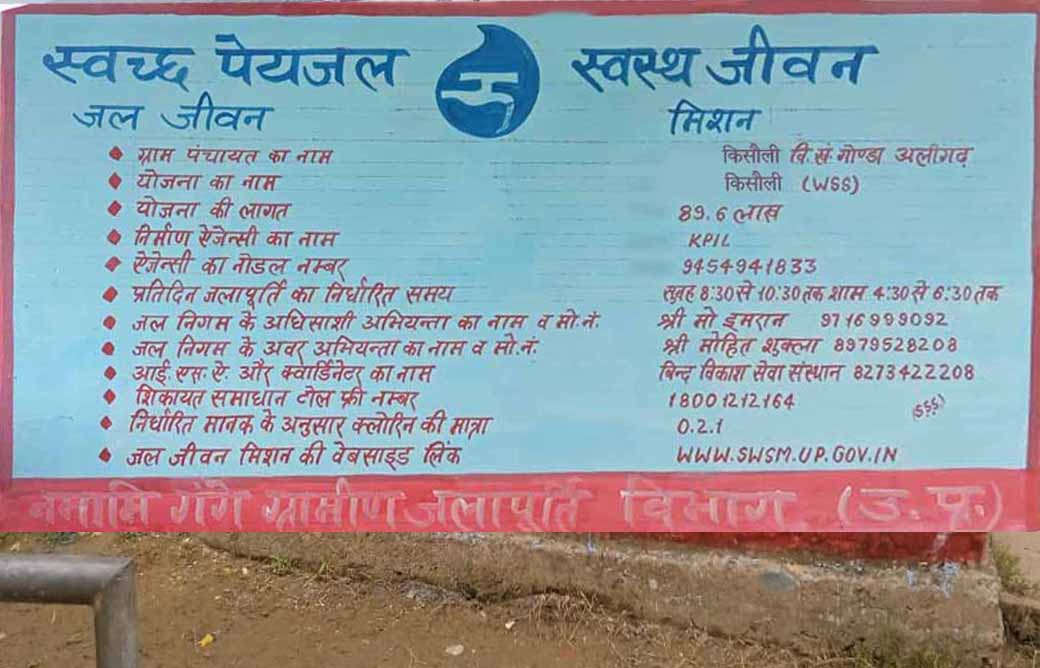 स्वच्छ पेयजल स्वस्थ जीवन
जल जीवन मिशन
ग्राम पंचायत का नाम किसौली वि.खं. गोण्डा अलीगढ़
योजना का नाम किसौली (WSS)
योजना की लागत 89.6 लाख
निर्माण ऐजेन्सी का नाम KPIL
ऐजेन्सी का नोडल नम्बर 9454941833
प्रतिदिन जलापूर्ति का निर्धारित समय सुबह 8:30 से 10:30 तक शाम 4:30 से 6:30 तक
जल निगम के अधिसाशी अभियन्ता का नाम व मो.नं. श्री मो इमरान 9716999092
जल निगम के अवर अभियन्ता का नाम व मो.नं. श्री मोहित शुक्ला 8979528208
आई.एस.ऐ. और क्वार्डिनेटर का नाम बिन्द विकाश सेवा संस्थान 8273422208
शिकायत समाधान टोल फ्री नम्बर 18001212164 (SSS)
निर्धारित मानक के अनुसार क्लोरिन की मात्रा 0.2.1
जल जीवन मिशन की वेबसाइड लिंक WWW.SWSM.UP.GOV.IN
नमामि गंगे ग्रामीण जलापूर्ति विभाग (उ.प्र.)